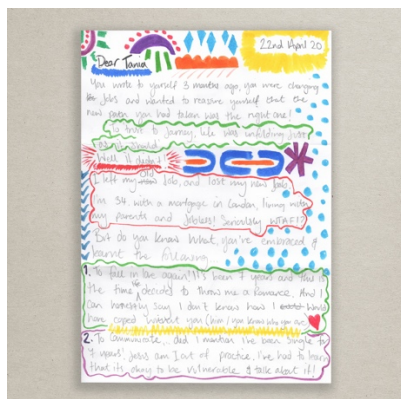 22nd April 20
Dear Tania
You wrote to yourself 3 months ago, you were changing
jobs and wanted to reassure yourself that the
new path you had taken was the right one!
To trust the journey, life was unfolding just
as it should.
Well it didn't
I left my old Job, and lost my new Job
I'm 34, with a mortgage in London, living with
my parents and Jobless! Seriously WTAF!?
But do you know what, you've embraced &
learnt the following
1. To fall in love again!!! It's been 7 years and this is
the time decided to throw me a Romance. And I
can honestly say I don't know how I would
have coped without you (him)
2. To communicate.. did I mention I've been Single for
7 years! Jesus am I out of practice. I've had to learn
that it's okay to be vulnerable & talk about it!